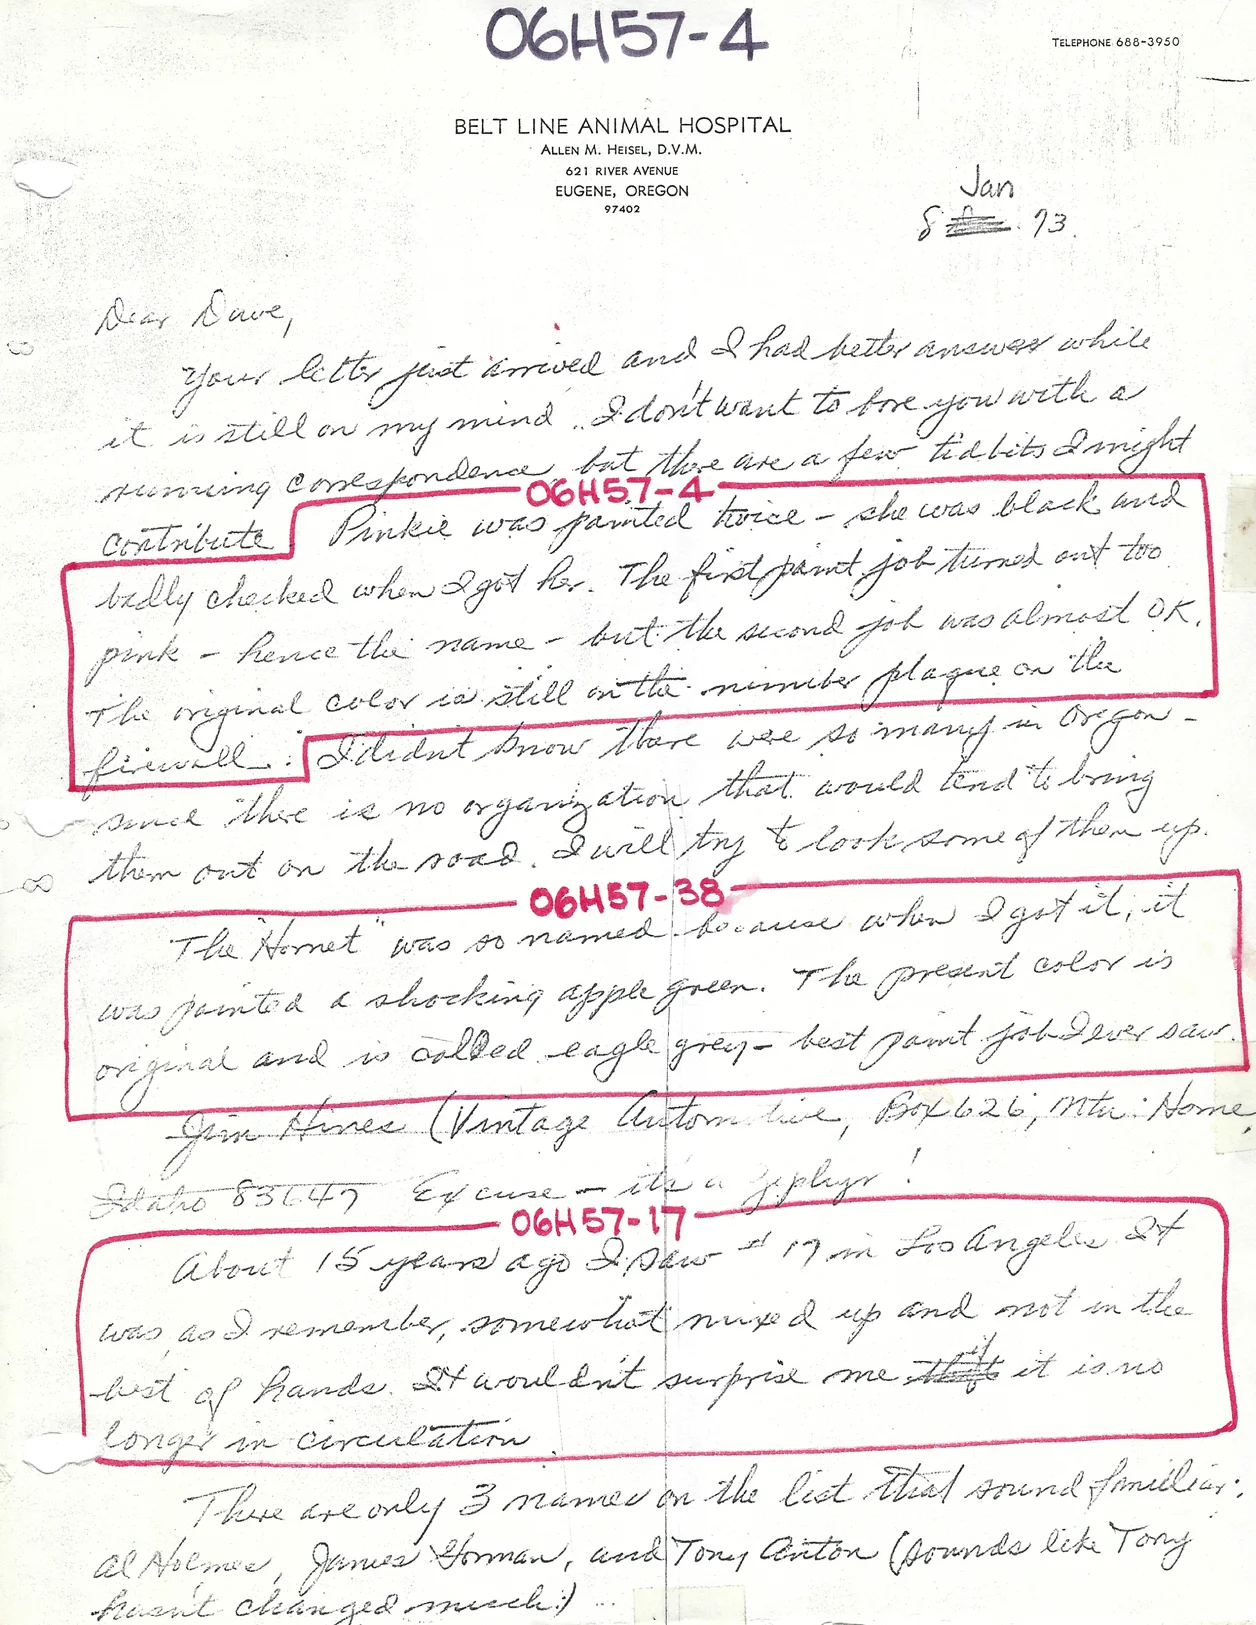 06H57-4
TELEPHONE 688-3950
BELT LINE ANIMAL HOSPITAL
ALLEN M. HEISEL, D.V.M.
621 RIVER AVENUE
EUGENE, OREGON
97402
Jan
8 73.
Dear Dave,
Your letter just arrived and I had better answer while
it is still on my mind. I don't want to bore you with a
running correspondence but there are a few tidbits I might
06H57-4
contribute. Pinkie was painted twice - she was black and
badly checked when I got her. The first paint job turned out too
pink - hence the name - but the second job was almost OK.
The original color is still on the number plaque on the
firewall. I didn't know there were so many in Oregon -
since there is no organization that would tend to bring
them out on the road. I will try to look some of them up.
06H57-38
The "Hornet" was so named because when I got it, it
was painted a shocking apple green. The present color is
original and is called eagle grey - best paint job I ever saw.
Jim Hines (Vintage Automotive, Box 626, Mtn. Home,
Idaho 83647 Excuse - it's a Zephyr!
06H57-17
About 15 years ago I saw #17 in Los Angeles. It
was, as I remember, somewhat mixed up and not in the
best of hands. It wouldn't surprise me if it is no
longer in circulation.
There are only 3 names on the list that sound familiar:
Al Holmes, James Gorman, and Tony Anton (sounds like Tony
hasn't changed much!) ...